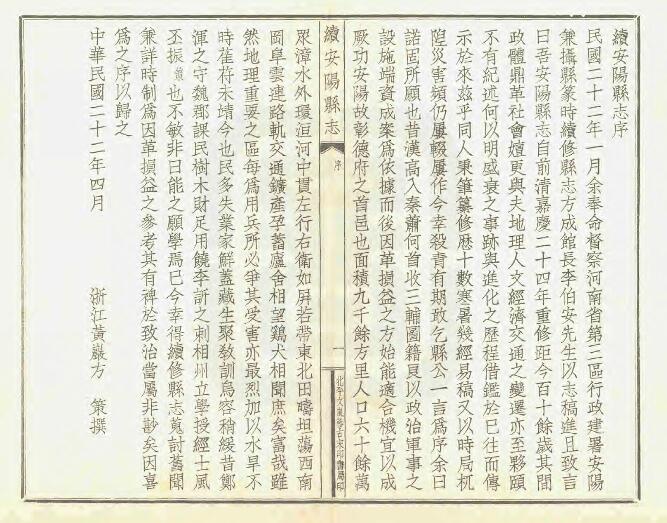 續安陽縣志序
民國二十二年一月余奉命督察河南省第三區行政建署安陽
兼攝縣篆時續修縣志方成館長李伯安先生以志稿進且致言
曰吾安陽縣志自前清嘉慶二十四年重修距今百十餘歲其間
政體鼎革社會嬗更與夫地理人文經濟交通之變遷亦至夥頤
不有紀述何以明盛衰之事跡與進化之歷程借鑑於已往而傳
示於來茲乎同人秉筆纂修曆十數寒暑幾經易稿又以時局杌
隉災害頻仍屢輟屢作今幸殺青有期敢乞縣公一言爲序余曰
諾固所願也昔漢高入秦蕭何首收三輔圖籍良以政治軍事之
設施端資成案爲依據而後因革損益之方始能適合機宜以成
厥功安陽故彰德府之首邑也面積九千餘方里人口六十餘萬
續安陽縣志
序
一
北平文嵐簃古宋印書局印
眾漳水外環洹河中貫左行右衛如屏若帶東北田疇坦蕩西南
岡阜雲連路軌交通鑛產孕蓄廬舍相望鷄犬相聞庶矣富哉雖
然地理重要之區每爲用兵所必爭其受害亦最烈加以水旱不
時萑苻未靖今也民多失業家鮮蓋藏生聚敎訓烏容稍緩昔鄭
渾之守魏郡課民樹木財足用饒李訢之刺相州立學授經士風
丕振 也不敏非曰能之願學焉已今幸得續修縣志蒐討舊聞
兼詳時制爲因革損益之參考其有裨於致治當屬非尠矣因喜
爲之序以歸之
中華民國二十二年四月
浙江黃巖方 策撰